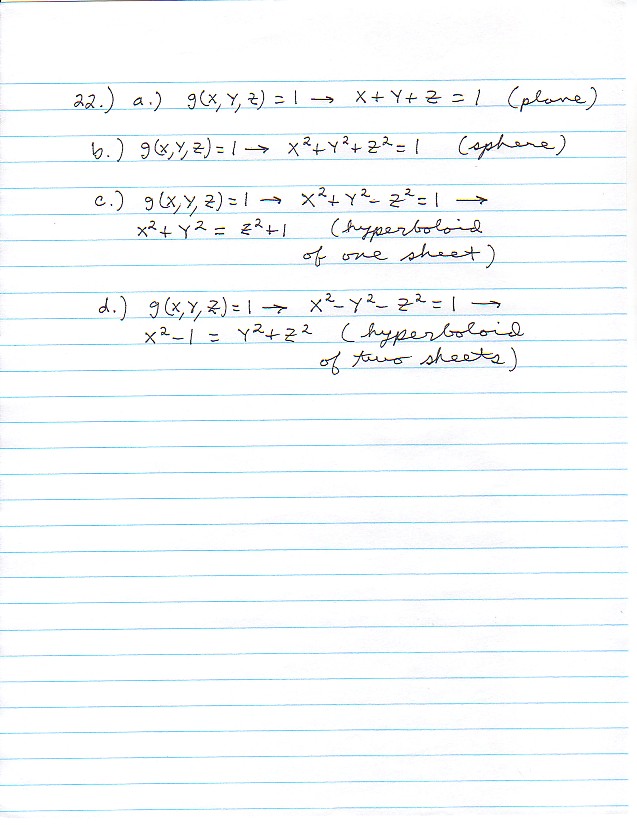 22.) a.) g(x, Y, z) = 1 → x + Y + z = 1 (plane)
b.) g(x, Y, z) = 1 → x² + Y² + z² = 1 (sphere)
c.) g(x, Y, z) = 1 → x² + Y² - z² = 1 →
x² + Y² = z² + 1 (hyperboloid
of one sheet)
d.) g(x, Y, z) = 1 → x² - Y² - z² = 1 →
x² - 1 = Y² + z² (hyperboloid
of two sheets)